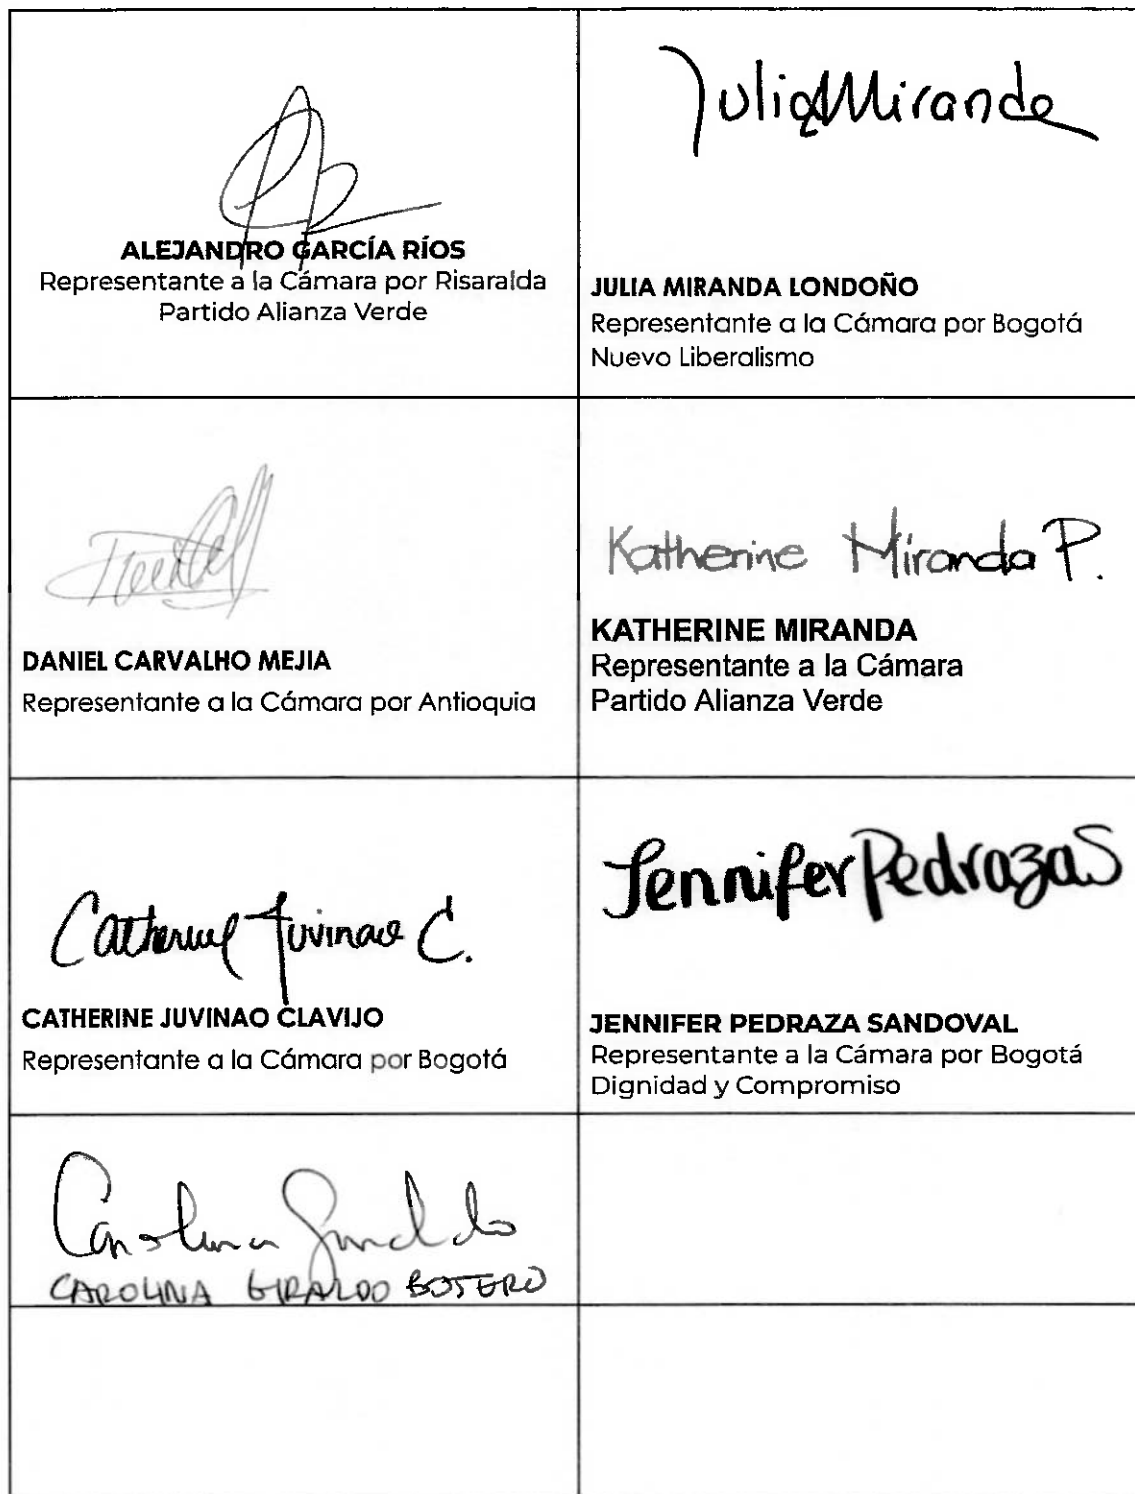 ALEJANDRO GARCÍA RÍOS
Representante a la Cámara por Risaralda
Partido Alianza Verde
Julia Miranda
JULIA MIRANDA LONDOÑO
Representante a la Cámara por Bogotá
Nuevo Liberalismo
DANIEL CARVALHO MEJIA
Representante a la Cámara por Antioquia
Katherine Miranda P.
KATHERINE MIRANDA
Representante a la Cámara
Partido Alianza Verde
Catherine Juvinao C.
CATHERINE JUVINAO CLAVIJO
Representante a la Cámara por Bogotá
Jennifer Pedraza S
JENNIFER PEDRAZA SANDOVAL
Representante a la Cámara por Bogotá
Dignidad y Compromiso
Carolina Giraldo
CAROLINA GIRALDO BOTERO